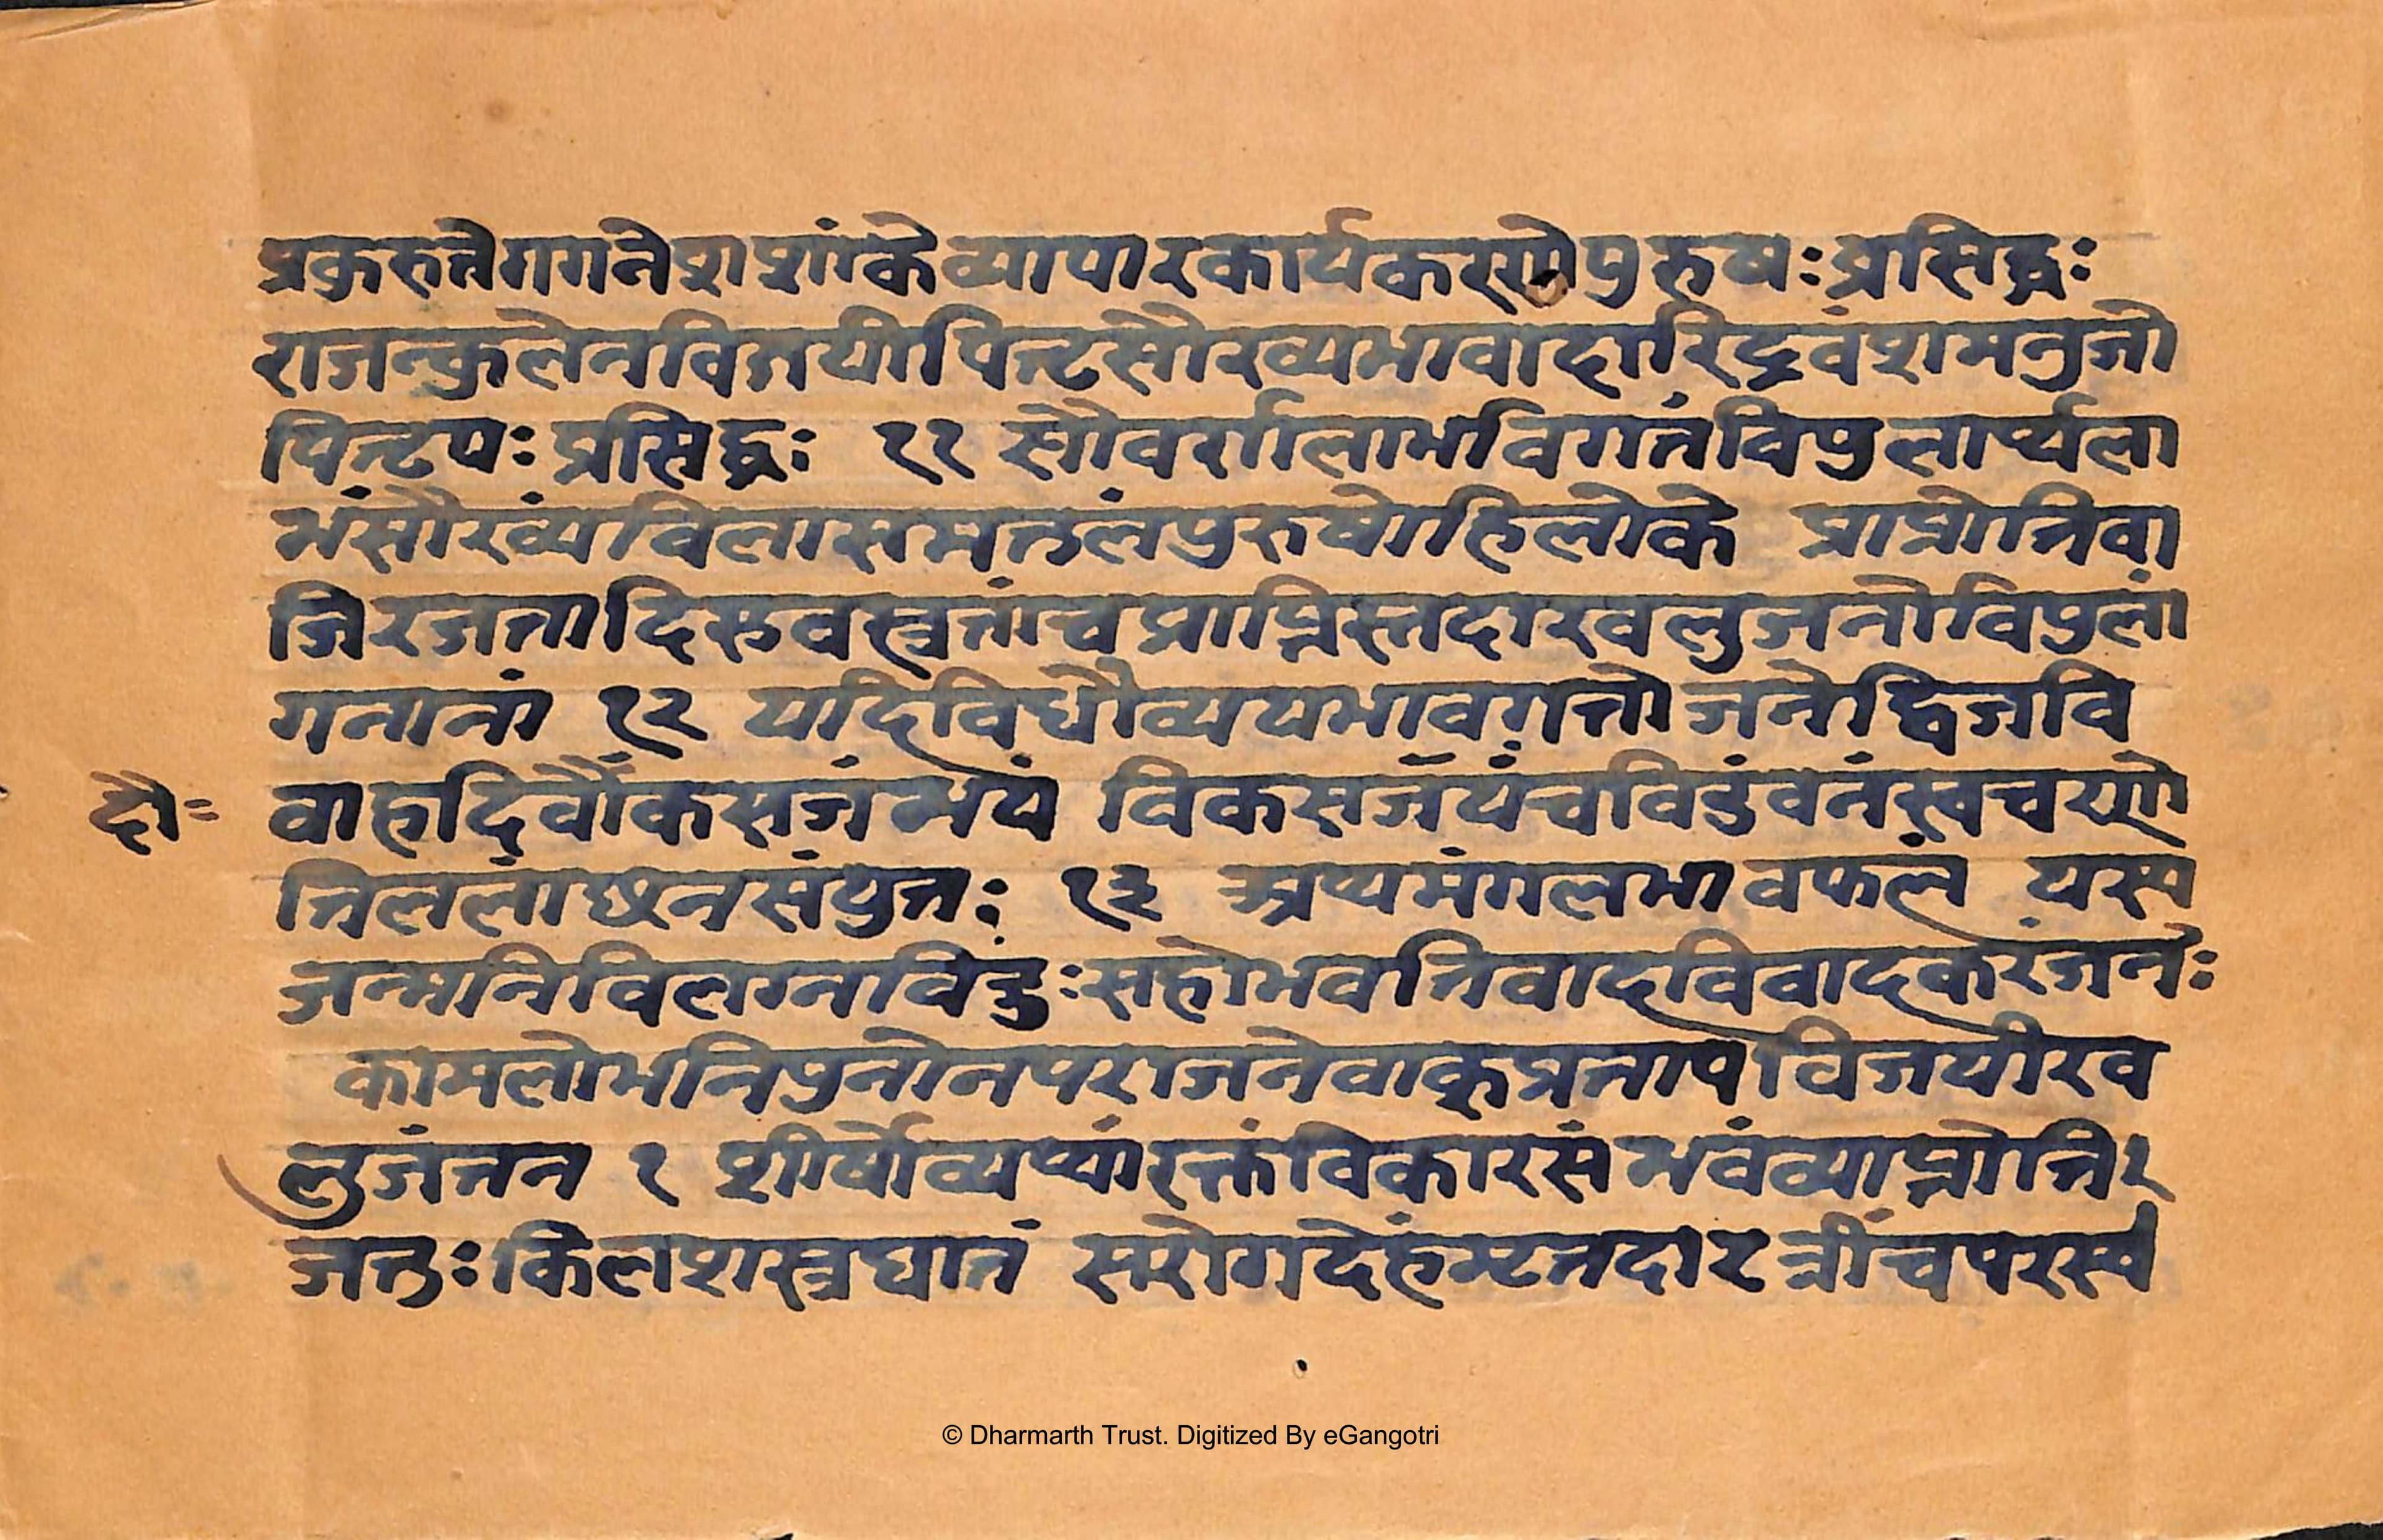 प्रकुरुतेगगनेशशांकेव्यापारकार्यकरणेपुरुषःप्रसिद्धः
राजन्कुलेनविजयीपितृसौख्यभावादारिद्रवंशमनुजो
पितृपःप्रसिद्धः ११ सौवर्णलाभविगतंविपुलार्थला
भंसौख्यंविलासमतुलंपुरुषोहिलोके प्राप्नोतिवा
जिरजतादिसुवस्त्रतांचप्राप्तिस्तदाखलुजनोविपुलां
गनानां १२ यदिविधौव्ययभावगतोजनेद्विजवि
दौ= वाहदिवौकसजंभयं विकसजंयंचविडंवनंस्वचयो
तिललांछनसंयुतः १३ अथमंगलभावफलं यस्य
जन्मनिविलग्नवित्तुःसहोभवतिवादविवादकरंजनः
कामलोभनिपुनोनपराजनेवाकृप्रतापविजयीरव
लुजंतन १ शीर्षोव्यथांरक्तंविकारसंभवंव्याप्नोति१
जतुःकिलशस्त्रघातं सरोगदेहंमृतदारत्रींचपरस्वं
© Dharmarth Trust. Digitized By eGangotri